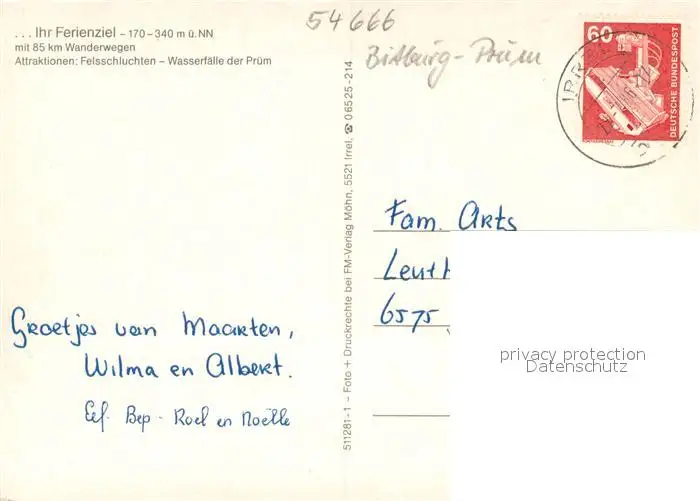 ... Ihr Ferienziel – 170 – 340 m ü. NN
mit 85 km Wanderwegen
Attraktionen: Felsschluchten – Wasserfälle der Prüm
54666
Bitburg-Prüm
60
DEUTSCHE BUNDESPOST
511281-1 – Foto + Druckrechte bei FM-Verlag Möhn, 5521 Irrel, ☎ 0 65 25-214
Fam. Arts
Leuth
6575
Groetjes van Maarten,
Wilma en Albert.
Eef. Bep - Roel en Noëlle
privacy protection
Datenschutz